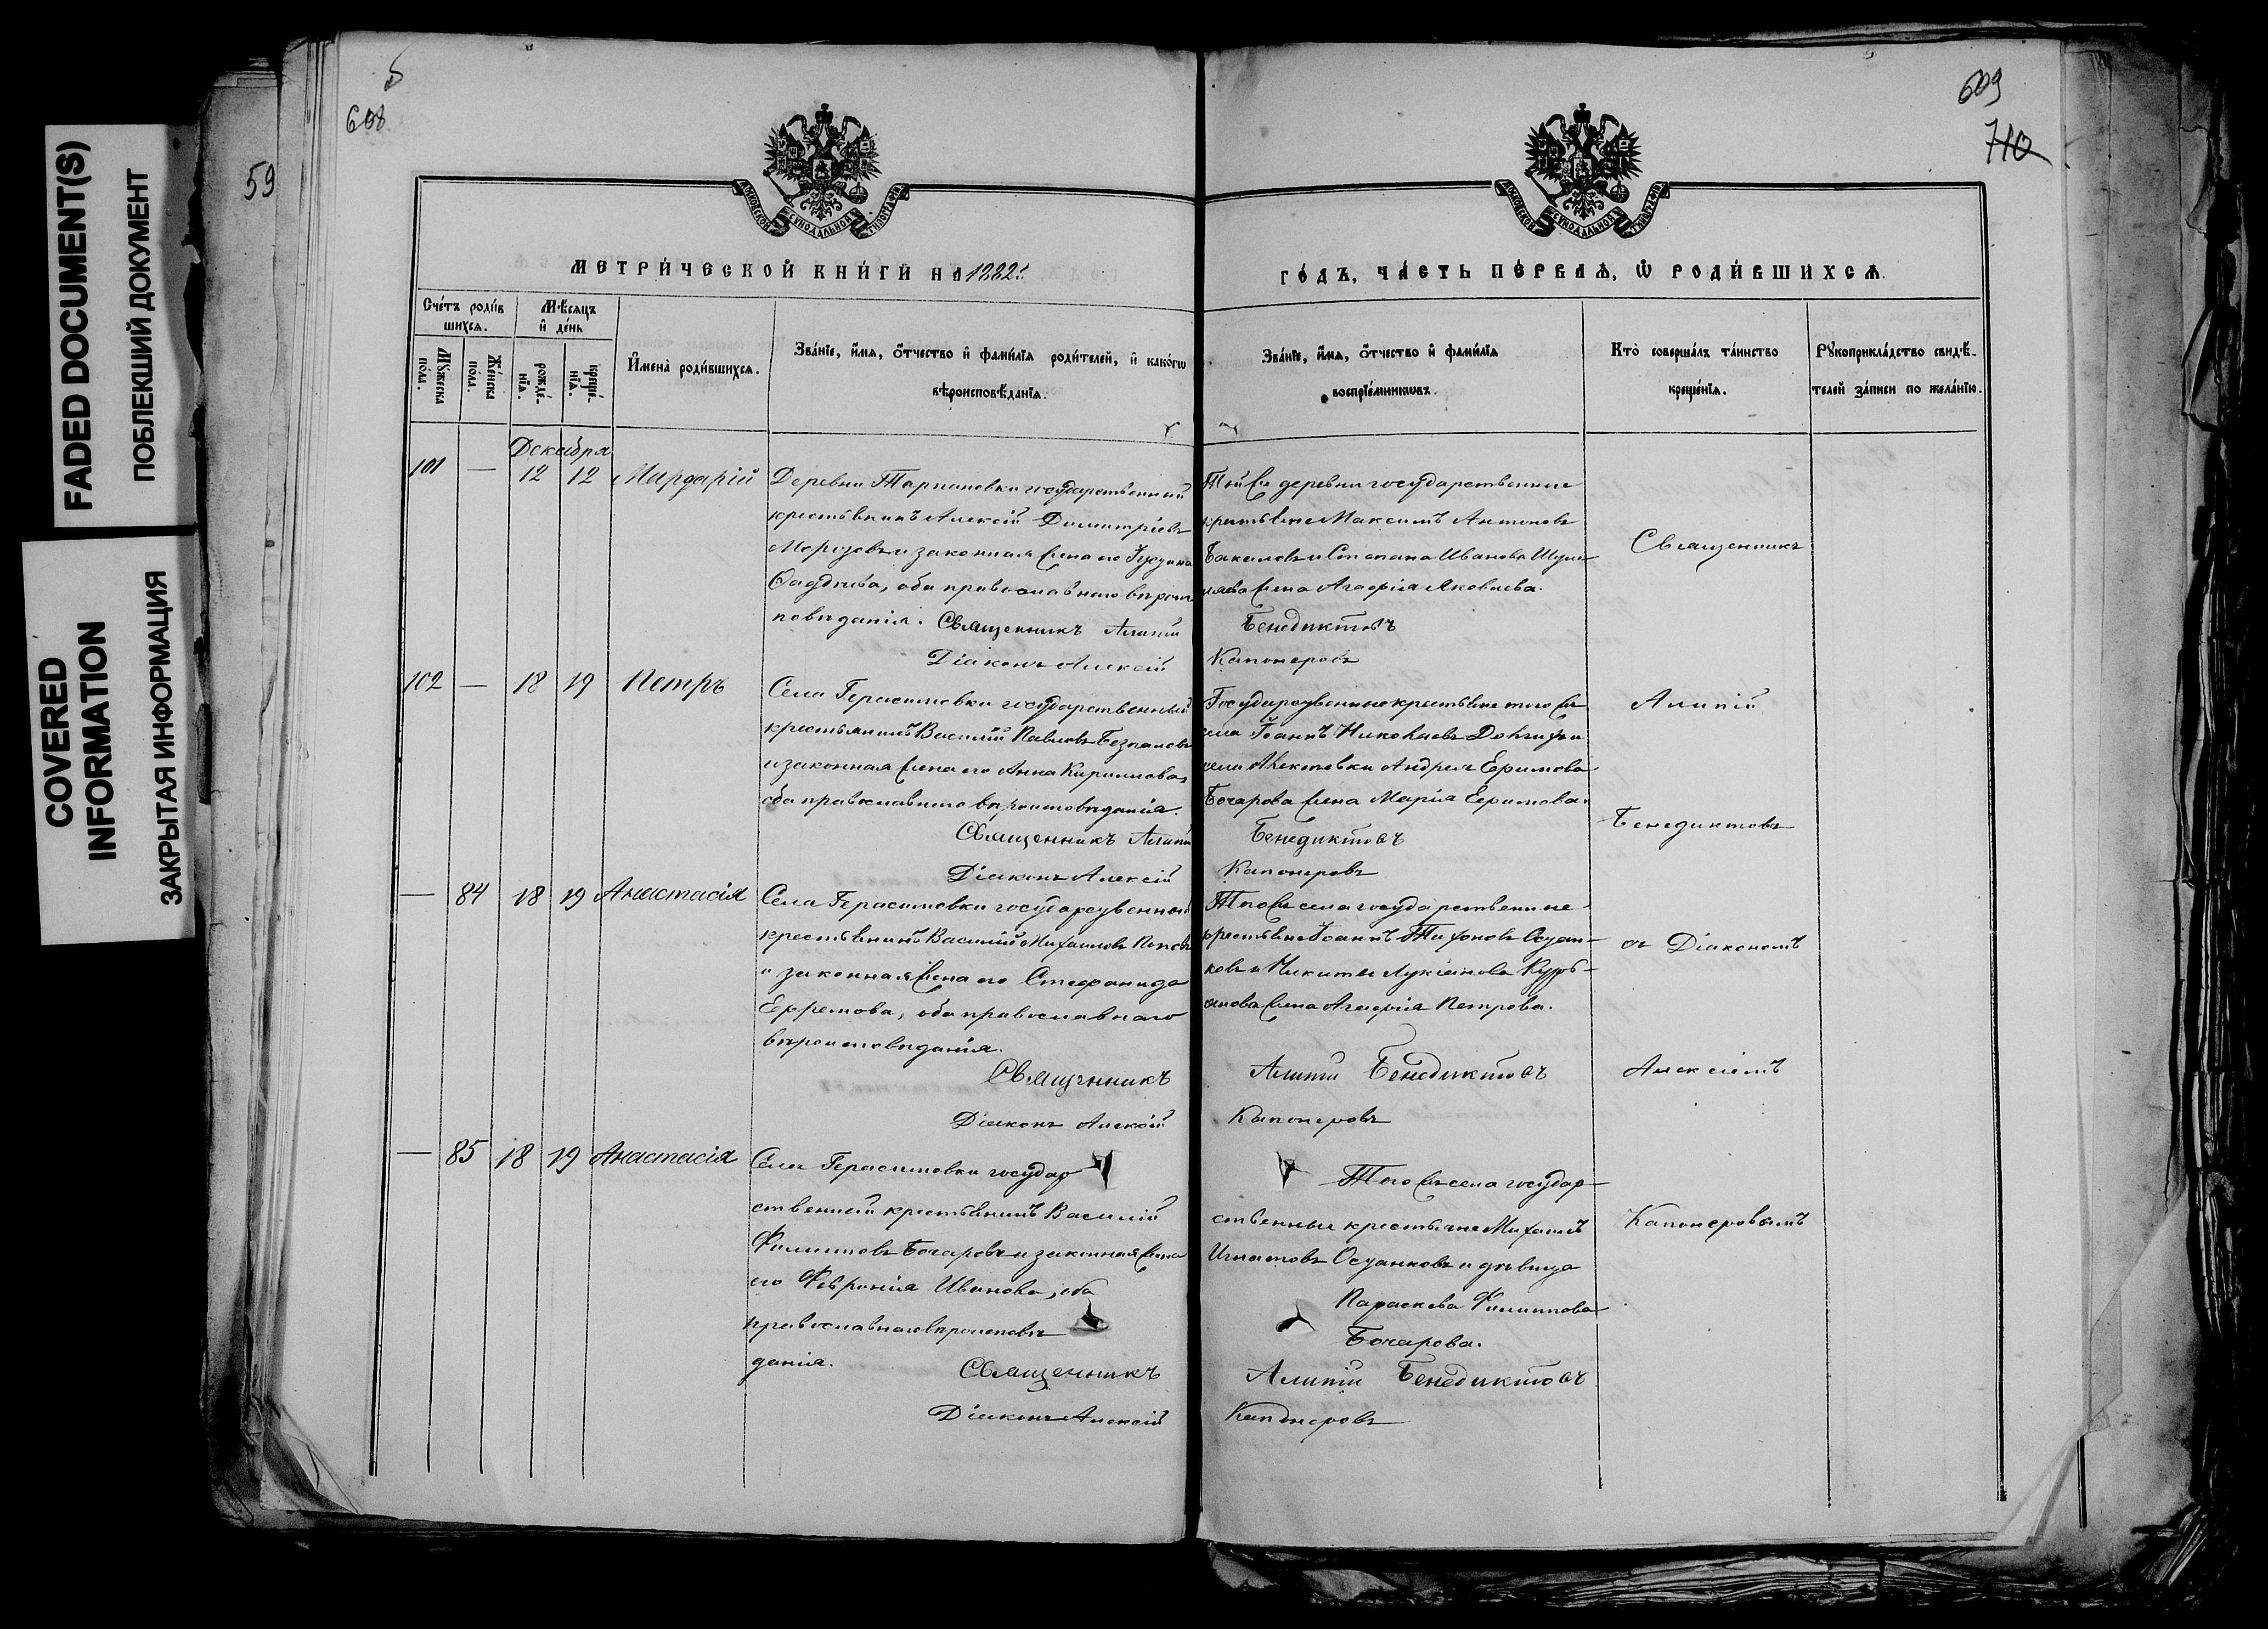 FADED DOCUMENT(S)
ПОБЛЕКШИЙ ДОКУМЕНТ
COVERED
INFORMATION
ЗАКРЫТАЯ ИНФОРМАЦИЯ
59
608
609
710
МОСКОВСКОЙ СѴНОДАЛЬНОЙ ТИПОГРАФІИ
МОСКОВСКОЙ СѴНОДАЛЬНОЙ ТИПОГРАФІИ
МЕТРИ́ЧЕСКОЙ КНИ́ГИ НА 1882й
ГО́ДЪ, ЧА́СТЬ ПЕ́РВАѦ, Ѽ РОДИ́ВШИХСѦ.
Сче́тъ роди́в
шихсѧ.
Мꙋжеска
по́ла.
Же́нска
по́ла.
Мѣ́сяцъ
и҆ де́нь
рожде́-
нїѧ.
креще́-
нїѧ.
И҆мена̀ роди́вшихсѧ.
Зва́нїе, и҆́мѧ, ѻ҆́тчество и҆ фами́лїѧ роди́телей, и҆ како́гѡ
вѣроисповѣ́данїѧ.
Зва́нїе, и҆́мѧ, ѻ҆́тчество и҆ фами́лїѧ
воспрїе́мникѡвъ.
Кто̀ соверша́лъ та́инство
креще́нїѧ.
Рꙋкоприкла́дство свидѣ́-
телей за́писи по жела́нїю.
Декабря
101 — 12 12 Мардарій
Деревни государственный
крестьянинъ Алексій Димитріевъ
Морозовъ и законная жена его
Фаддеева, оба православнаго вѣроис-
повѣданія. Священникъ Алипій
Діаконъ Алексій
Той же деревни государственные
крестьяне Максимъ Антоновъ
и Степана Иванова
жена Агафія Яковлева.
Бенедиктовъ
Капонеровъ
102 — 18 19 Петръ
Села Герасимовки государственный
крестьянинъ Василій Павловъ
и законная жена его Анна Кириллова,
оба православнаго вѣроисповѣданія.
Священникъ Алипій
Діаконъ Алексій
Государственные крестьяне того же
села Іоаннъ Николаевъ и
села Алексѣевки Андрея Ефимова
Бочарова жена Марія Ефимова.
Бенедиктовъ
Капонеровъ
— 84 18 19 Анастасія
Села Герасимовки государственный
крестьянинъ Василій Михаиловъ Поповъ
и законная жена его Стефанида
Ефремова, оба православнаго
вѣроисповѣданія.
Священникъ
Діаконъ Алексій
Того же села государственные
крестьяне Іоаннъ Тихоновъ Осян-
ковъ и Никиты Лукіанова
жена Агафія Петрова.
Алипій Бенедиктовъ
Капонеровъ
— 85 18 19 Анастасія
Села Герасимовки государ
ственный крестьянинъ Василій
Филипповъ Бочаровъ и законная жена
его Февронія Иванова, оба
православнаго вѣроисповѣ
данія.
Священникъ
Діаконъ Алексій
Того же села государ-
ственные крестьяне Михаилъ
Игнатовъ Осянковъ и дѣвица
Параскева Филиппова
Бочарова.
Алипій Бенедиктовъ
Капонеровъ
Священникъ
Алипій
Бенедиктовъ
съ Діакономъ
Алексіемъ
Капонеровымъ